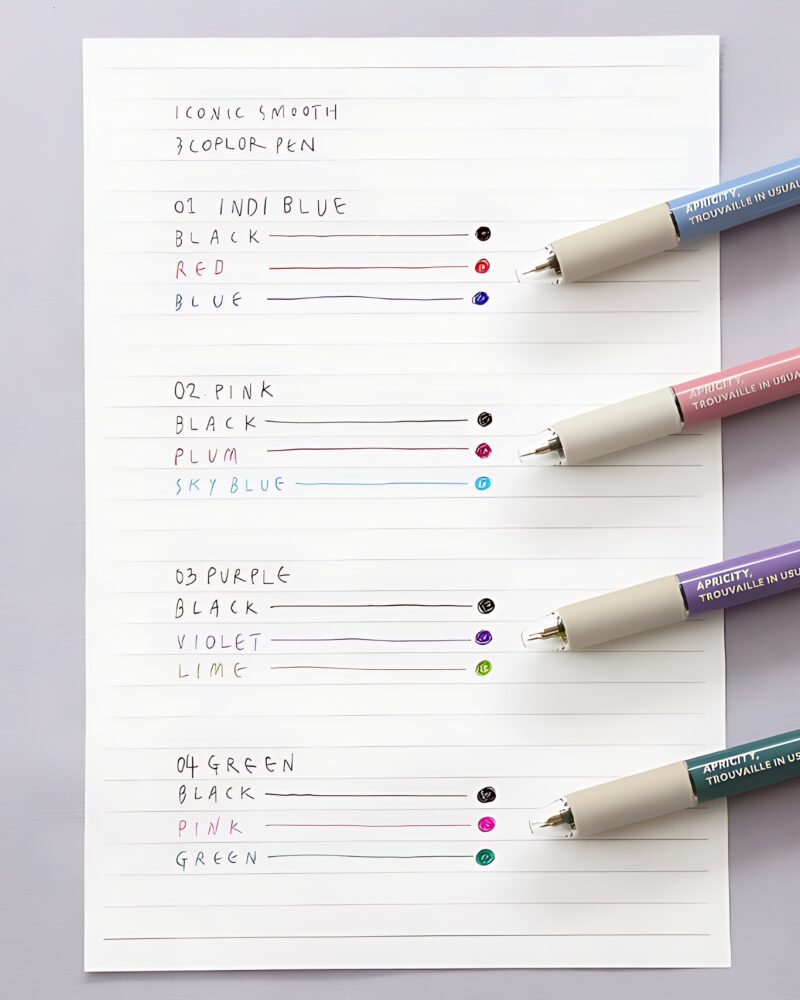 ICONIC SMOOTH
3 COPLOR PEN
01 INDI BLUE
BLACK
RED
BLUE
APRICITY,
TROUVAILLE IN USUAL
02. PINK
BLACK
PLUM
SKY BLUE
APRICITY,
TROUVAILLE IN USUA
03 PURPLE
BLACK
VIOLET
LIME
APRICITY,
TROUVAILLE IN USU
04 GREEN
BLACK
PINK
GREEN
APRICITY,
TROUVAILLE IN US